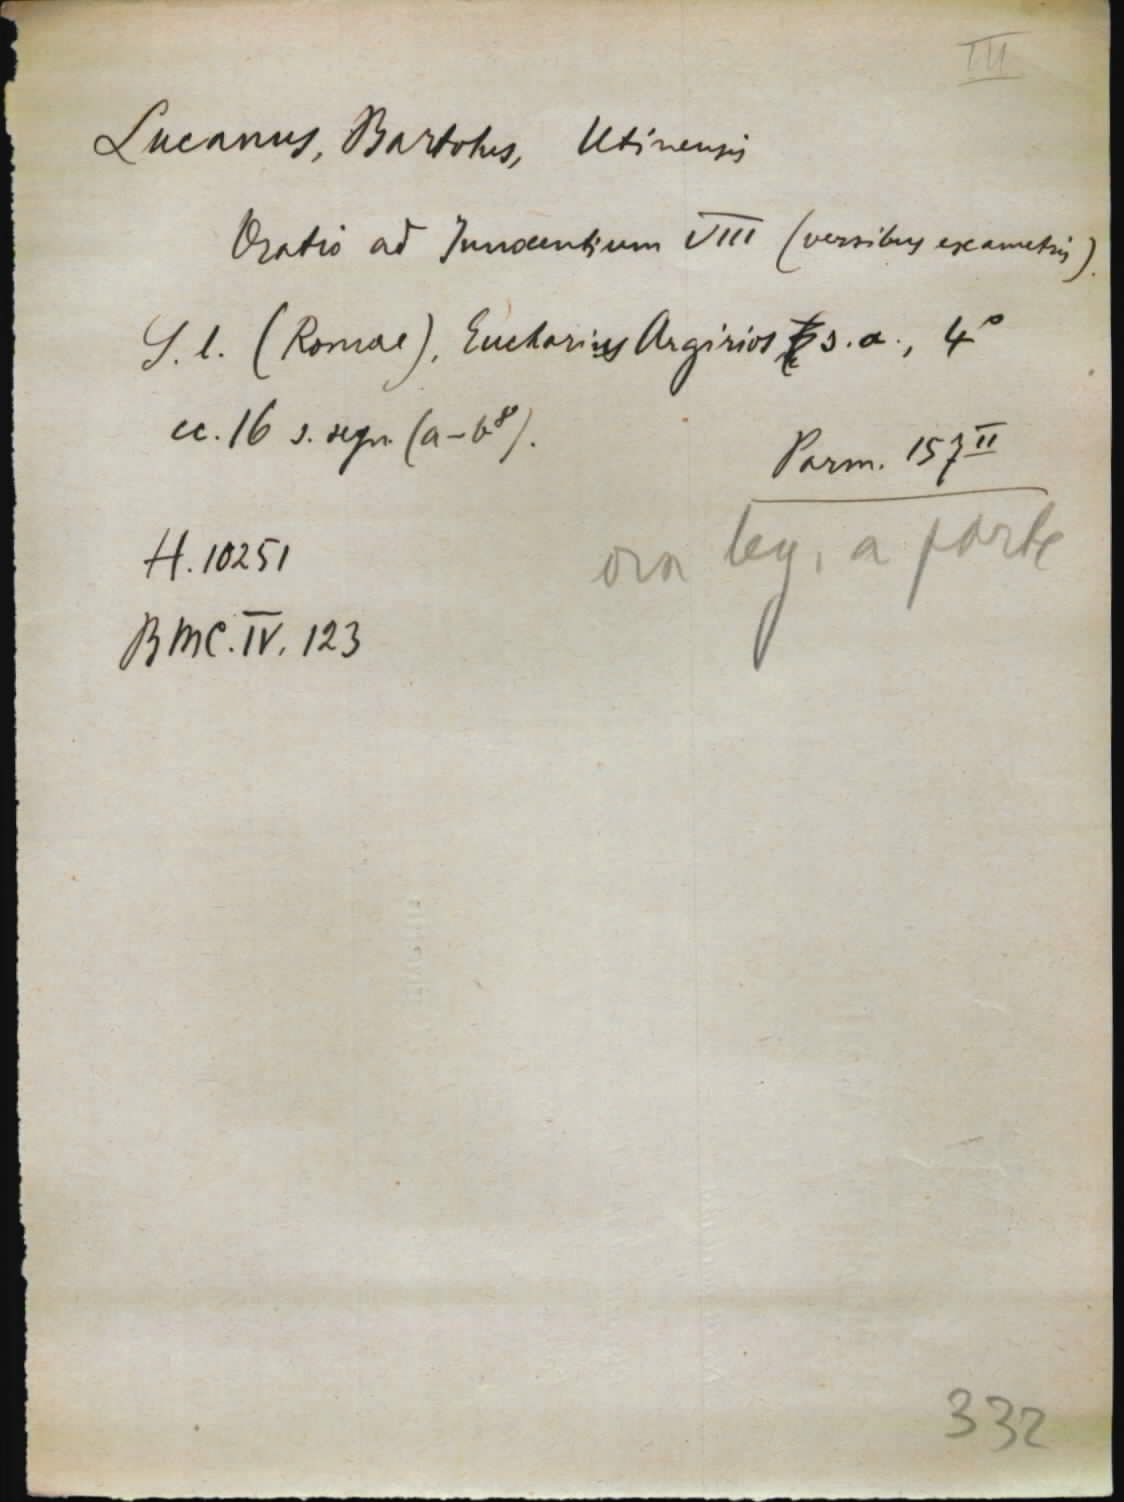 III
Lucanus, Bartolus, Utinensis
Oratio ad Innocentium VIII (versibus exametris).
S. l. (Romae), Eucharius Argirios s. a., 4°
cc. 16 s. segn. (a-b⁸).
Parm. 157 II
ora leg. a parte
H. 10251
BMC. IV. 123
332